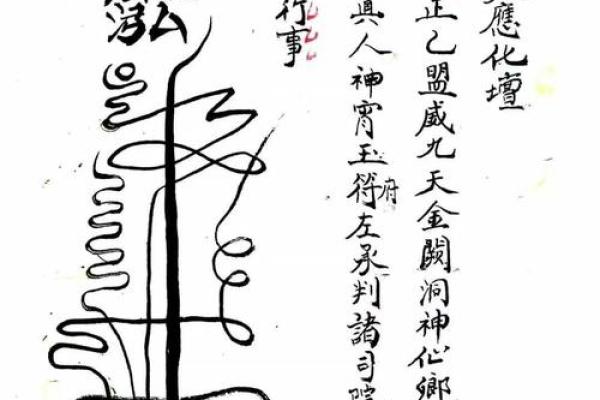 應化壇
正乙盟威九天金闕洞神仙鄉
眞人神宵玉符左承判諸司
府
行事